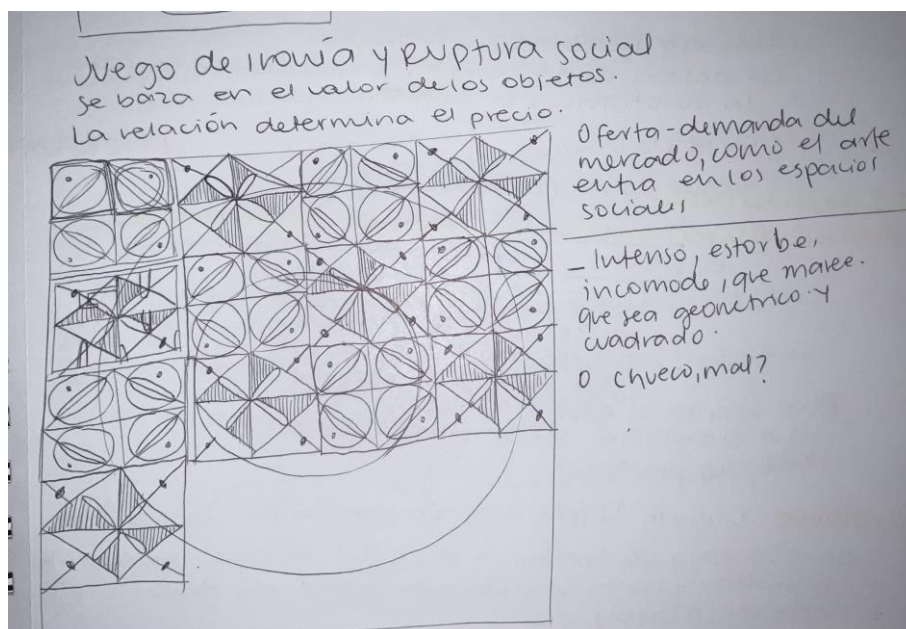 Juego de ironía y ruptura social
se baiza en el valor de los objetos.
La relación determina el precio.
Oferta-demanda del
mercado, como el arte
entra en los espacios
sociales
- Intenso, estorbe,
incomode, que maree.
que sea geométrico y
cuadrado.
O chueco, mal?